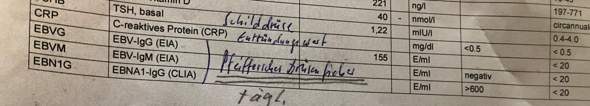 221 ng/l 197-771
40 - nmol/l circannual
TSH, basal 1,22 mIU/l 0.4-4.0
Schilddrüse
CRP C-reaktives Protein (CRP) mg/dl <0.5 < 0.5
Entzündungswert
EBVG EBV-IgG (EIA) 155 E/ml < 20
EBVM EBV-IgM (EIA) E/ml negativ < 20
Pfeifferisches Drüsenfieber
EBN1G EBNA1-IgG (CLIA) E/ml >600 < 20
tägl.